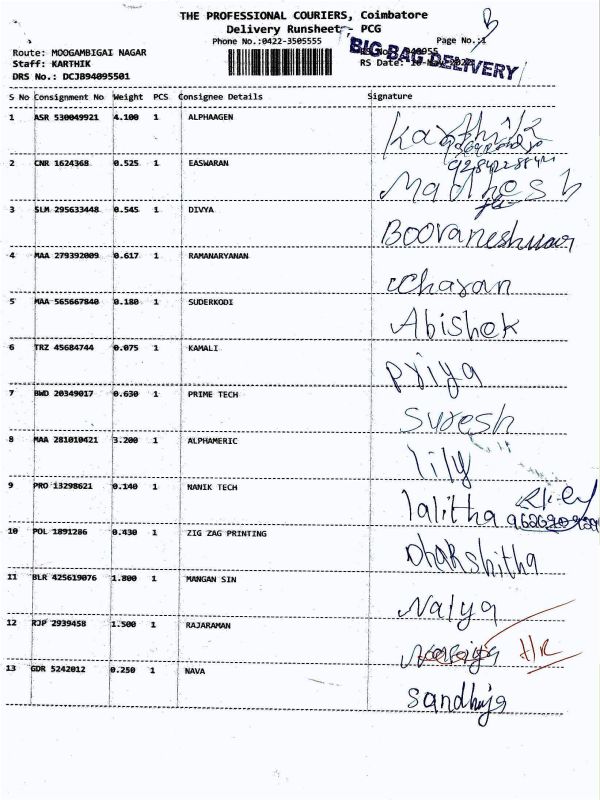 B
THE PROFESSIONAL COURIERS, Coimbatore
Delivery Runsheet - PCG
Phone No.:0422-3505555 Page No.:1
BIG BAG DELIVERY
Route: MOOGAMBIGAI NAGAR
Staff: KARTHIK RS Date:
DRS No.: DCJB94095501
S No Consignment No Weight PCS Consignee Details Signature
1 ASR 530049921 4.100 1 ALPHAAGEN Karthik
2 CNR 1624368 0.525 1 EASWARAN Madhesh
3 SLM 295633448 0.545 1 DIVYA Boovaneshwar
4 MAA 279392009 0.617 1 RAMANARYANAN Charan
5 MAA 565667840 0.180 1 SUDERKODI Abishek
6 TRZ 45684744 0.075 1 KAMALI Priya
7 BWD 20349017 0.630 1 PRIME TECH Suresh
8 MAA 281010421 3.200 1 ALPHAMERIC lily
9 PRO 13298621 0.140 1 NANIK TECH lalitha
10 POL 1891286 0.430 1 ZIG ZAG PRINTING Dhakshitha
11 BLR 425619076 1.800 1 MANGAN SIN Nalya
12 RJP 2939458 1.500 1 RAJARAMAN HR
13 GDR 5242012 0.250 1 NAVA Sandhiya